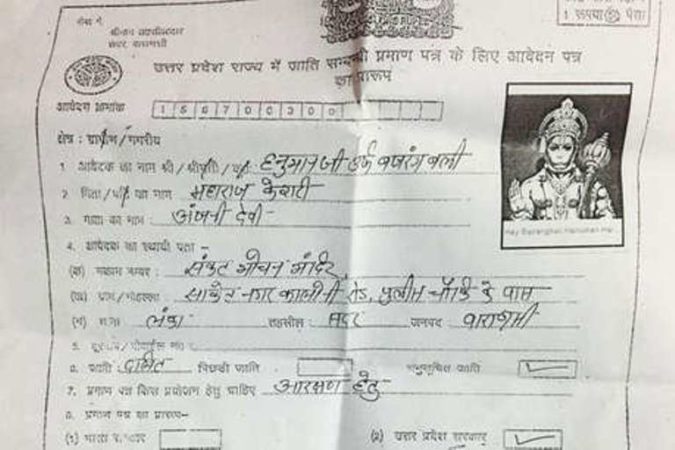 सेवा में,
श्रीमान तहसीलदार
सदर वाराणसी
1 रूपया पैसा
उत्तर प्रदेश राज्य में जाति सम्बन्धी प्रमाण पत्र के लिए आवेदन पत्र
का प्रारूप
आवेदन क्रमांक 1 5 6 7 0 0 3 0 0
क्षेत्र : ग्रामीण/नगरीय
1. आवेदक का नाम श्री/श्रीमती/ हनुमान जी उर्फ बजरंग बली
2. पिता/पति का नाम महाराज केशरी
3. माता का नाम अंजनी देवी
4. आवेदक का स्थायी पता –
(क) मकान नम्बर : संकट मोचन मंदिर
(ख) ग्राम/मोहल्ला साकेत नगर कालोनी रोड, पुलिस चौकी के पास
(ग) थाना लंका तहसील सदर जनपद वाराणसी
5.
6. जाति दलित पिछड़ी जाति अनुसूचित जाति ✓
7. प्रमाण पत्र किस प्रयोजन हेतु चाहिए आरक्षण हेतु
8. प्रमाण पत्र का प्रारूप–
(1) भारत सरकार (2) उत्तर प्रदेश सरकार ✓
Hey Bajrangbali Hanuman